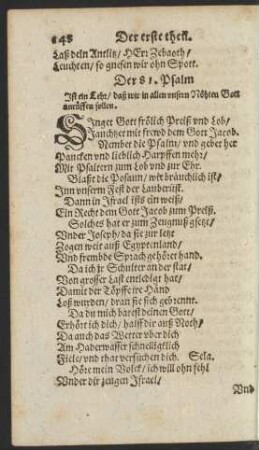 148 Der erste theil.
Laß dein Antlitz/ HErr Zebaoth/
Leuchten/ so gnesen wir ohn Spott.
Der 81. Psalm
Ist ein Lehr/ daß wir in allen unsern Nöhten Gott
anrüffen sollen.
SInget Gott frölich Preiß vnd Lob/
Jauchtzet mit frewd dem Gott Jacob.
Nembet die Psalm/ vnd gebet her
Paucken vnd lieblich Harpffen mehr/
Mit Psaltern zum Lob vnd zur Ehr.
Blaßt die Posaun/ wie bräuchlich ist/
Inn vnserm Fest der Lauberüst.
Dann in Israel ists ein weiß/
Ein Recht dem Gott Jacob zum Preiß.
Solches hat er zum Zeugnuß gsetzt/
Vnder Joseph/ da sie zur letzt
Zogen weit auß Egyptenland/
Vnd frembde Sprach gehöret hand.
Da ich jr Schulter an der stat/
Von grosser Last entledigt hat/
Damit der Töpffe ire Händ
Loß wurden/ dran sie sich gebrennt.
Da du mich batest deinen Gott/
Erhört ich dich/ halff dir auß Noth/
Da auch das Wetter vber dich
Am Haderwasser schnelliglich
Fiele/ vnd that versuchen dich. Sela.
Höre mein Volck/ ich will ohn fehl
Vnder dir zeugen Israel/
Vnd